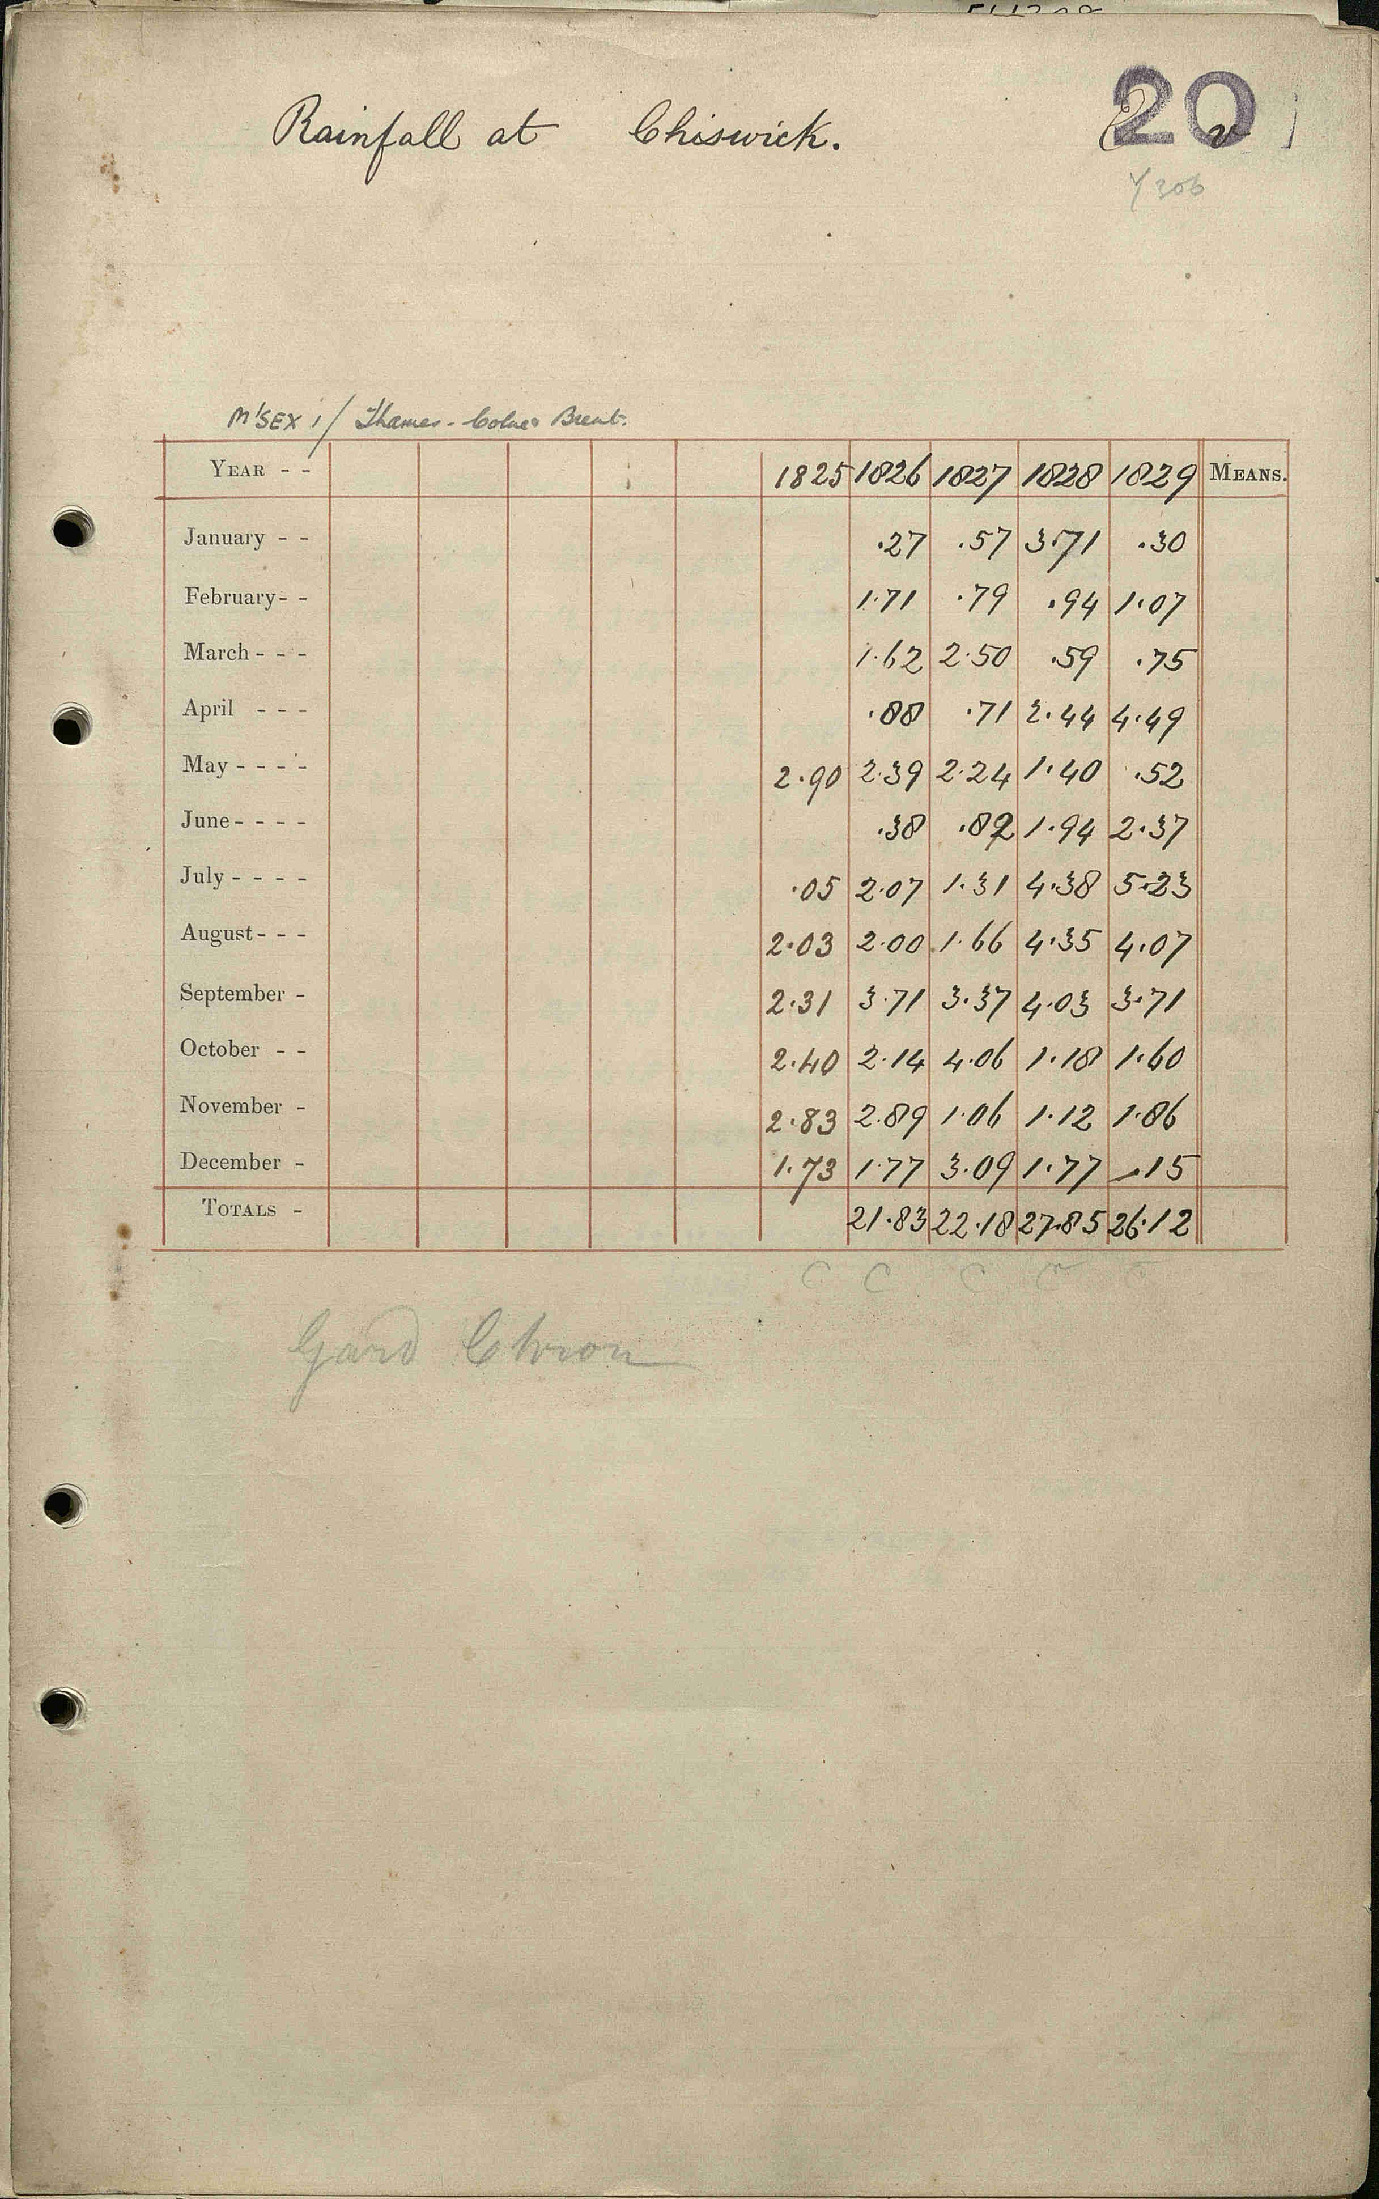 20
Rainfall at Chiswick.
Y 306
M'SEX 1/ Thames - Colne & Brent.
YEAR - - 1825 1826 1827 1828 1829 MEANS.
January - - .27 .57 3.71 .30
February - - 1.71 .79 .94 1.07
March - - - 1.62 2.50 .59 .75
April - - - .88 .71 2.44 4.49
May - - - - 2.90 2.39 2.24 1.40 .52
June - - - - .38 .82 1.94 2.37
July - - - - .05 2.07 1.31 4.38 5.23
August - - - 2.03 2.00 1.66 4.35 4.07
September - 2.31 3.71 3.37 4.03 3.71
October - - 2.40 2.14 4.06 1.18 1.60
November - 2.83 2.89 1.06 1.12 1.86
December - 1.73 1.77 3.09 1.77 .15
TOTALS - 21.83 22.18 27.85 26.12
C C C C C
Gard Chron